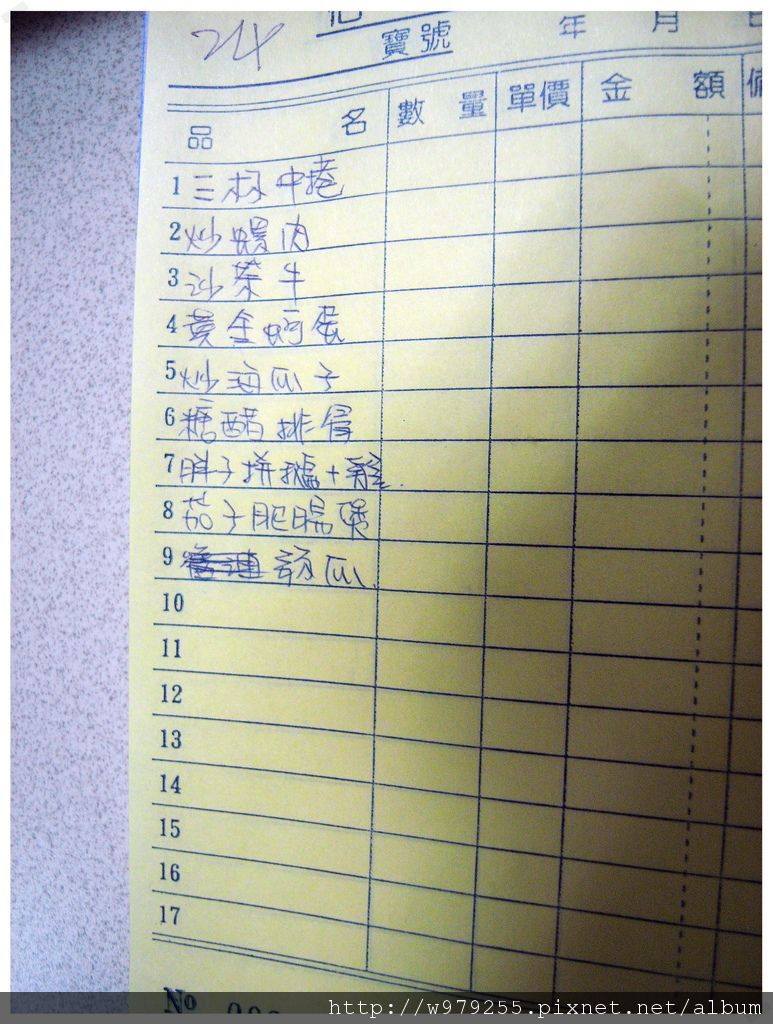 24
寶號 年 月 日
品 名 數 量 單價 金 額 備
1 三杯中捲
2 炒螺肉
3 沙茶牛
4 黃金蚵蛋
5 炒海瓜子
6 糖醋排骨
7 胖子拼
8 茄子肥腸煲
9 瓜
10
11
12
13
14
15
16
17
No
http://w979255.pixnet.net/album